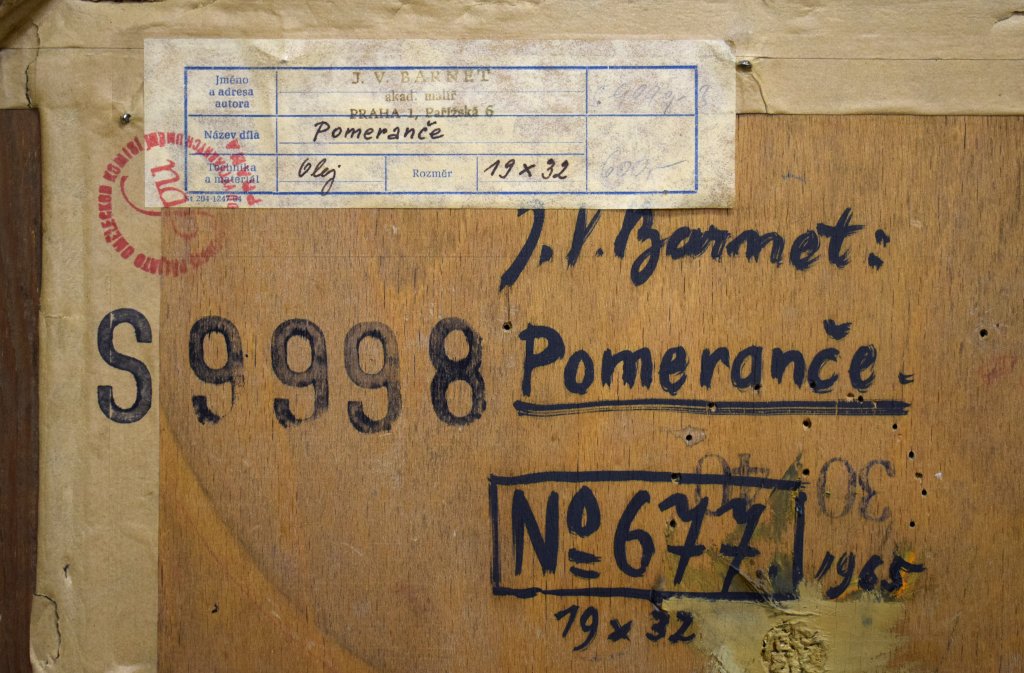 Jméno
a adresa
autora
J. V. BARNET
akad. malíř
PRAHA 1, Pařížská 6
Název díla
Pomeranče
Technika
a materiál
Olej
Rozměr
19 x 32
J. V. Barnet:
S 9998
Pomeranče.
30
No 677.
1965
19 x 32